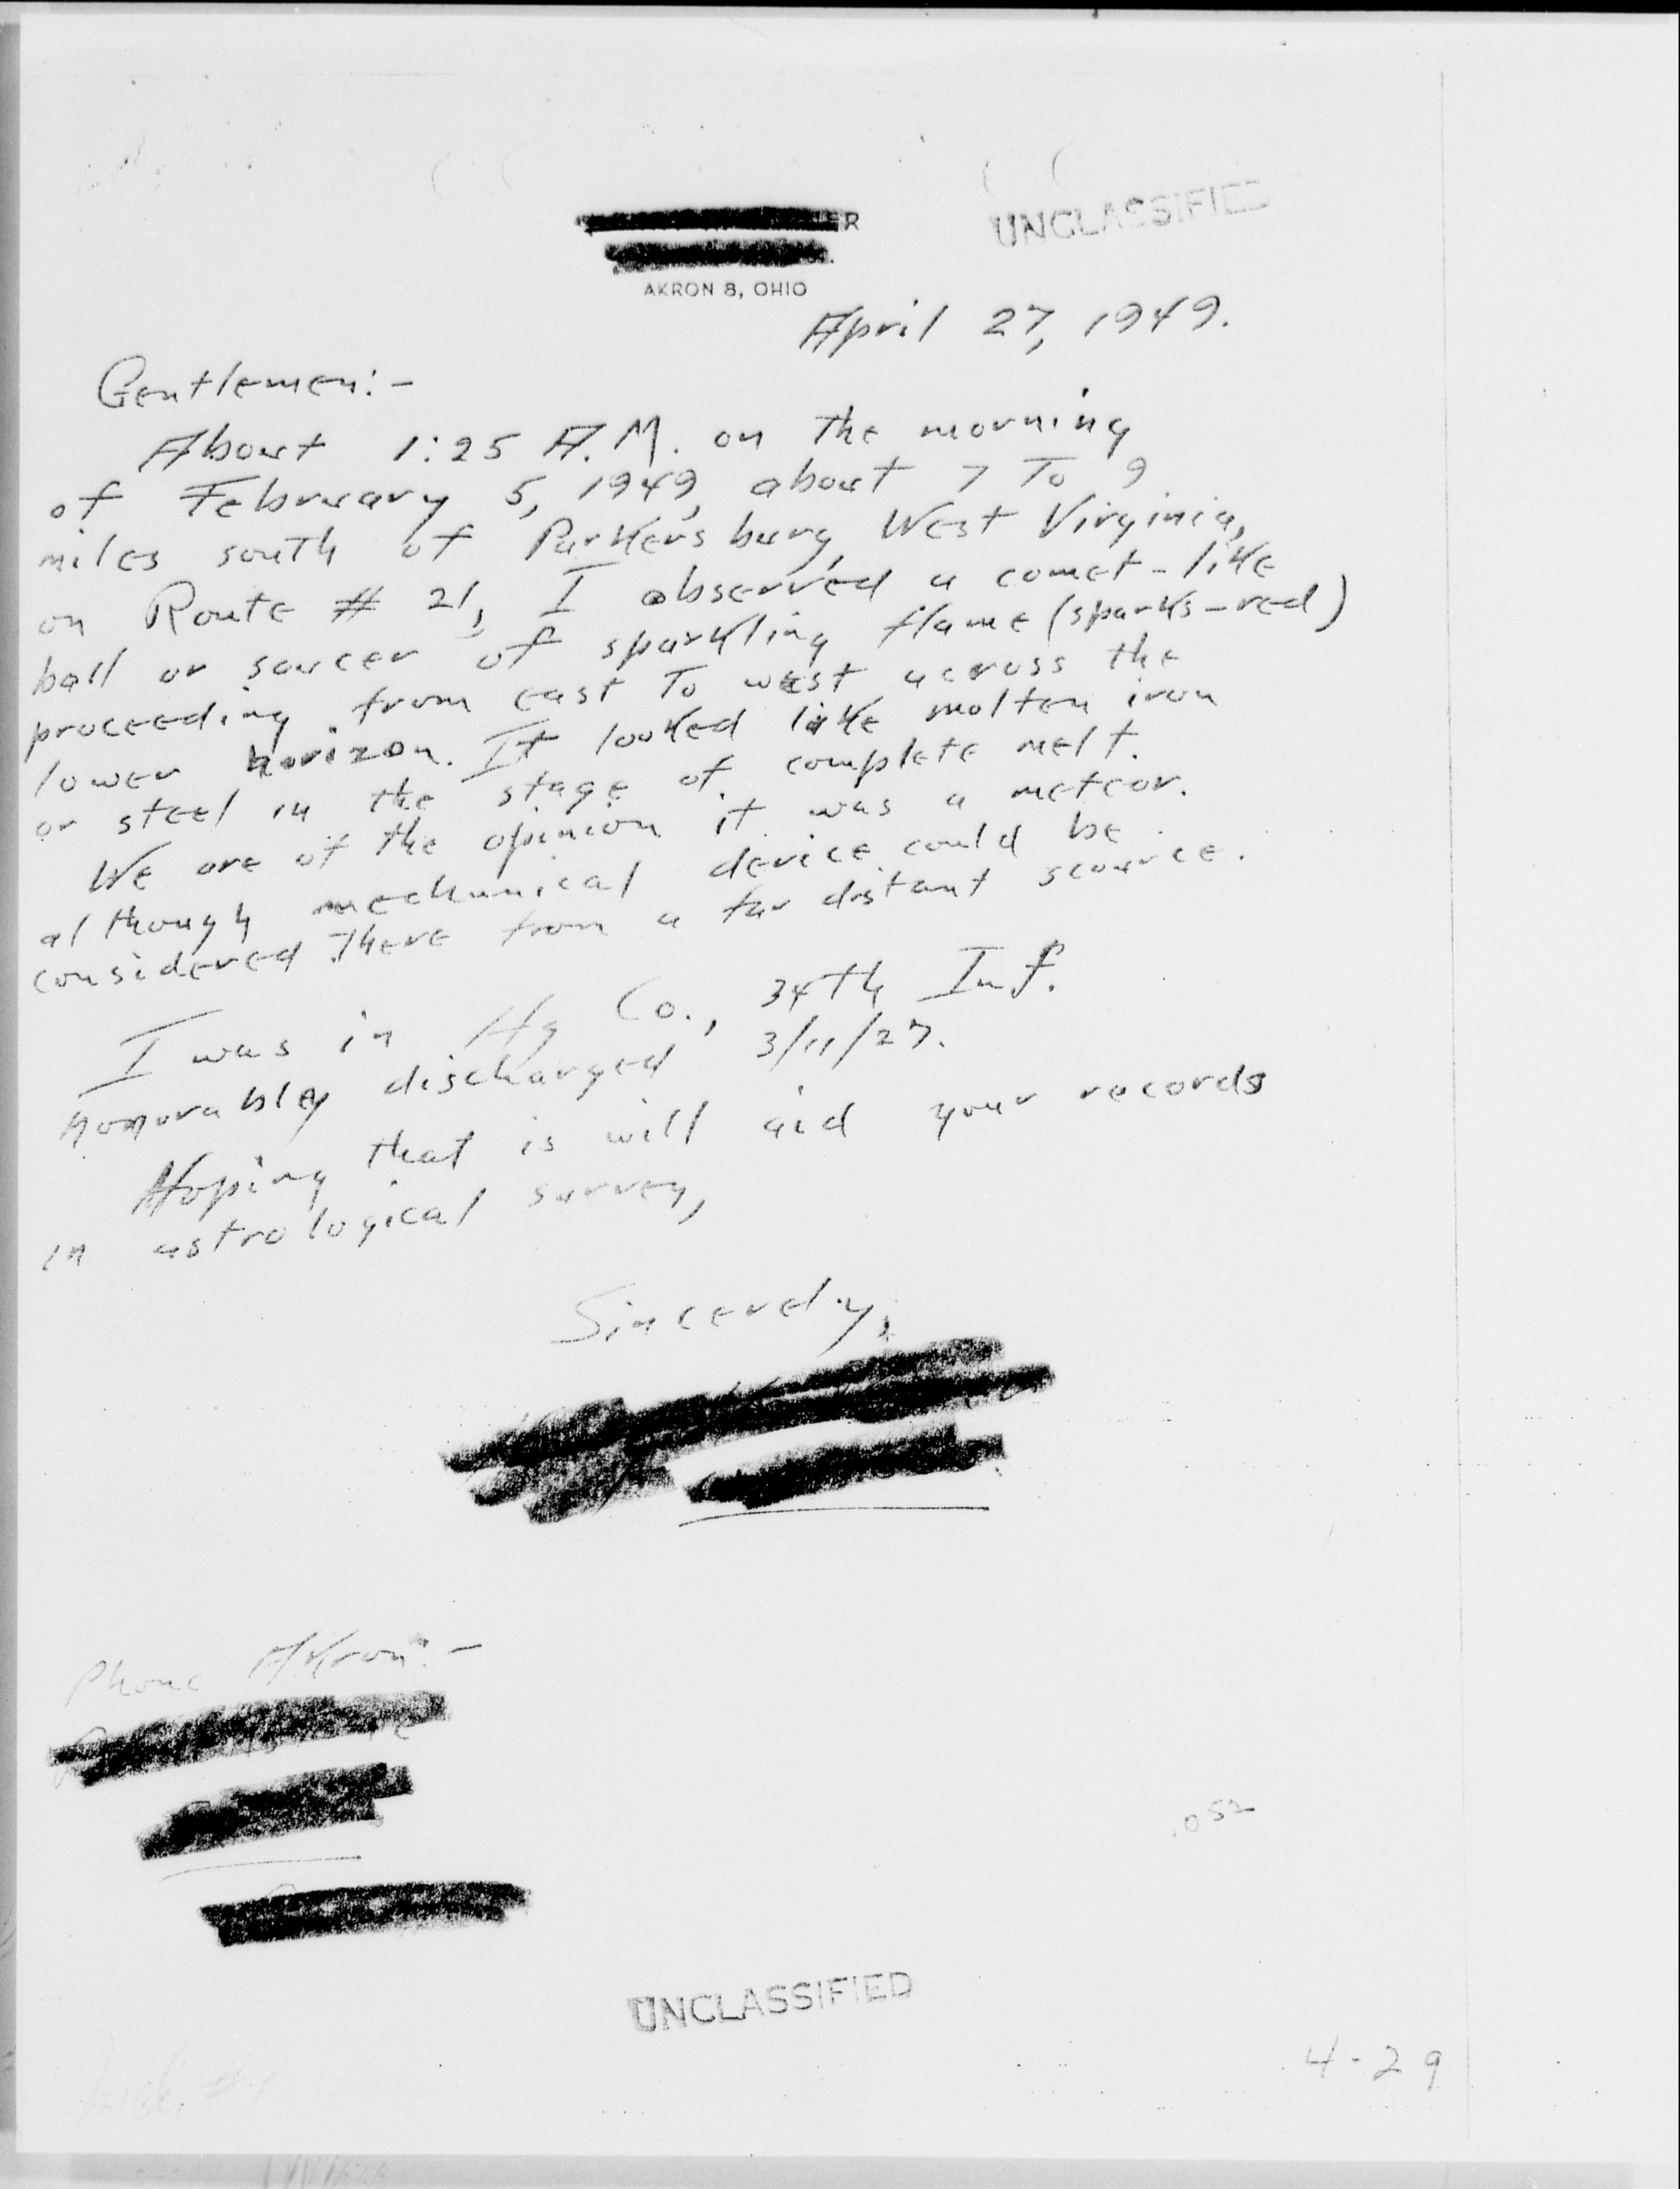 ER
UNCLASSIFIED
AKRON 8, OHIO
April 27, 1949.
Gentlemen:-
About 1:25 A.M. on the morning
of February 5, 1949, about 7 To 9
miles south of Parkersburg, West Virginia,
on Route # 21, I observed a comet-like
ball or saucer of sparkling flame (sparks-red)
proceeding from east To west across the
lower horizon. It looked like molten iron
or steel in the stage of complete melt.
We are of the opinion it was a meteor.
although mechanical device could be
considered There from a far distant scource.
I was in Hq Co., 34th Inf.
honorably discharged 3/11/27.
Hoping that is will aid your records
in astrological survey,
Sincerely,
Phone Akron:-
.052
UNCLASSIFIED
4-29